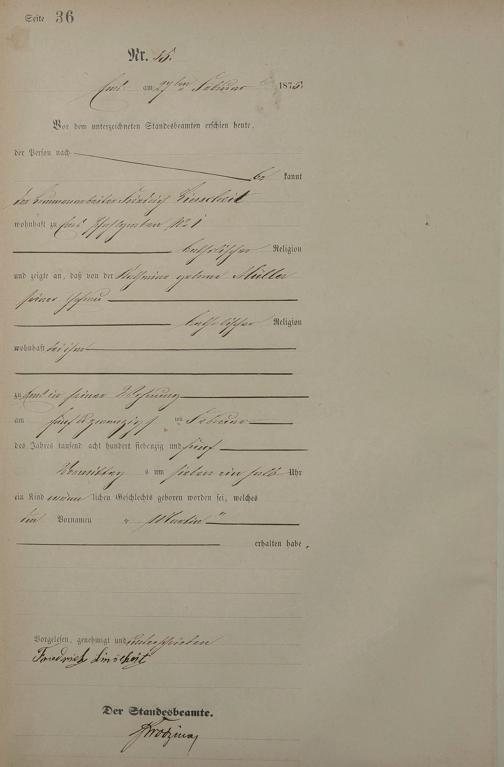 Seite 36
Nr. 15.
Ems am 27ten Februar 1875.
Vor dem unterzeichneten Standesbeamten erschien heute,
der Person nach
be kannt
der Friedrich
wohnhaft zu Ems No 1
katholischer Religion
und zeigte an, daß von der Katharina geborene Müller
seiner Ehefrau
katholischer Religion
wohnhaft bei ihm
zu Ems in seiner Wohnung
am fünf u zwanzig ten Februar
des Jahres tausend acht hundert siebenzig und fünf
Vormittag s um sieben ein halb Uhr
ein Kind männ lichen Geschlechts geboren worden sei, welches
den Vornamen „Martin"
erhalten habe.
Vorgelesen, genehmigt und unterschrieben
Friedrich
Der Standesbeamte.